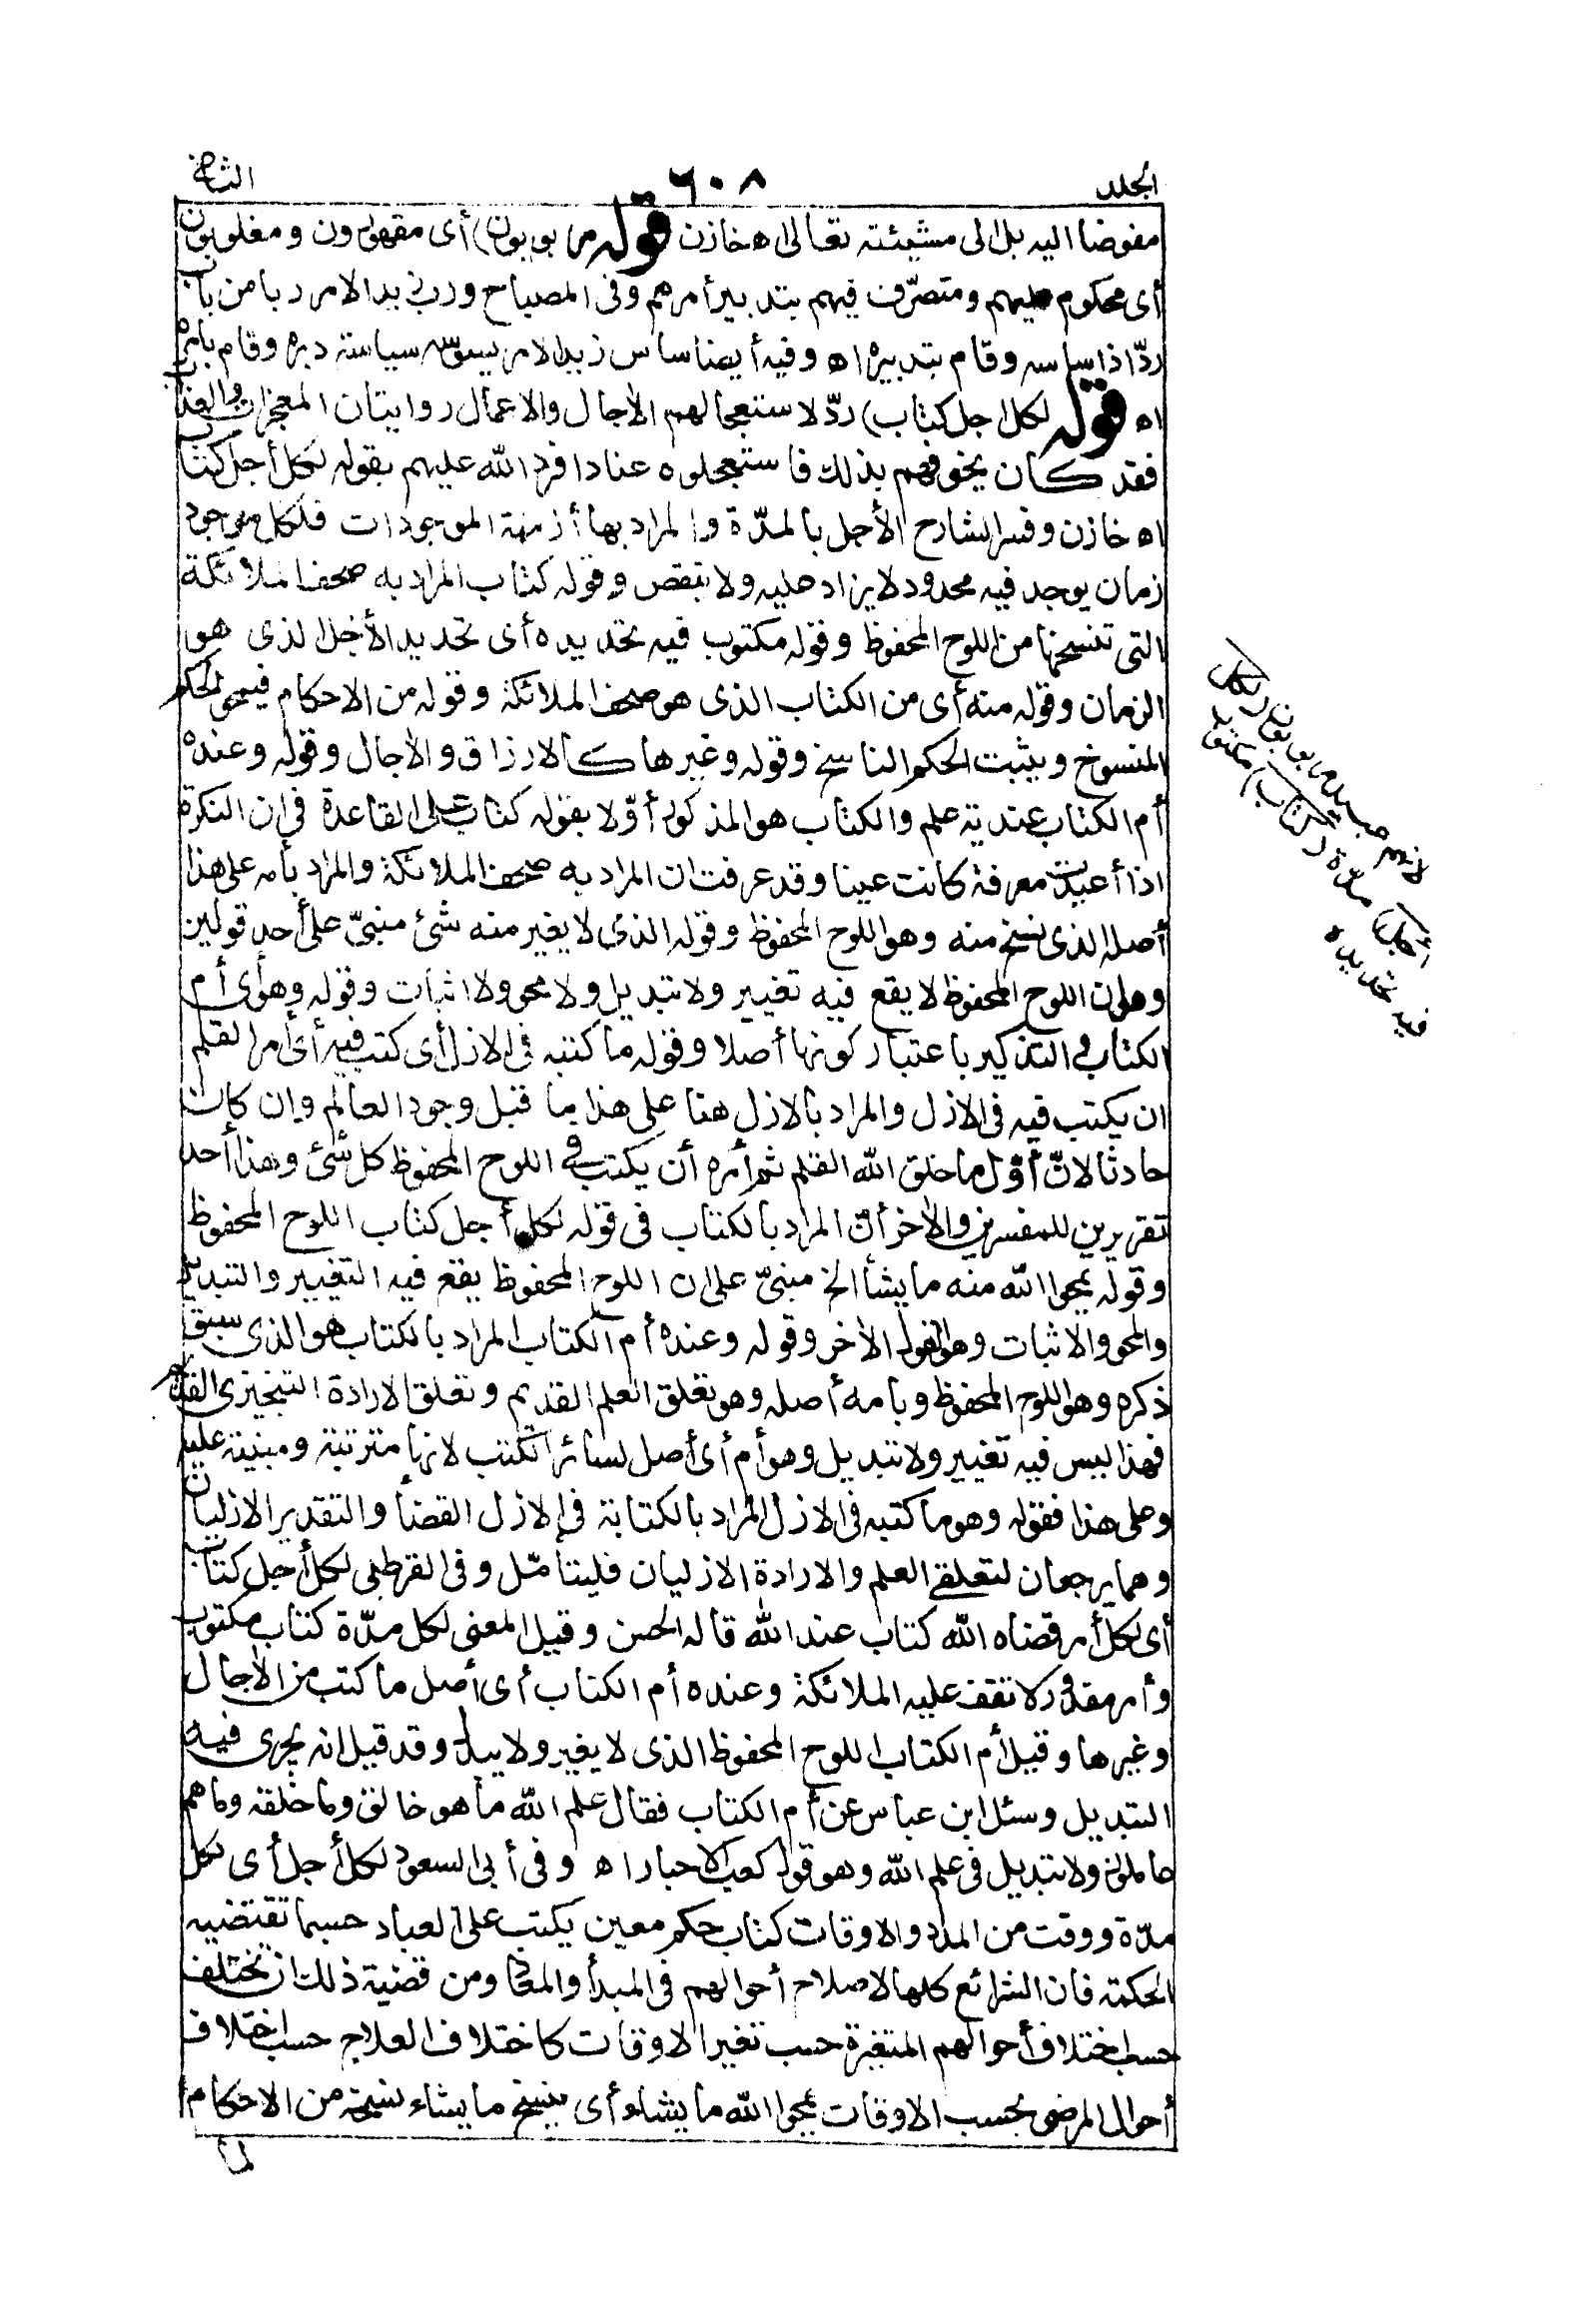 الجلد ٦٠٨ الثانى
مفوضا اليه بل الى مشيئته تعالى اه خازن قوله مربوبون) أى مقهورون ومغلوبون
أى محكوم عليهم ومتصرّف فيهم بتدبير أمرهم وفى المصباح ورب زيد الامر ربا من باب
ردّ اذا ساسه وقام بتدبيره اه وفيه أيضا ساس زيد الامر يسوسه سياسة دبره وقام بأمره
اه قوله لكل اجل كتاب) ردّ لاستعجالهم الآجال والاعمال واتيان المعجزات والعذاب
فقد كان يخوفهم بذلك فاستعجلوه عنادا فرد الله عليهم بقوله لكل أجل كتاب
اه خازن وفسر الشارح الأجل بالمدّة والمراد بها أزمنة الموجودات فلكل موجود
زمان يوجد فيه محدود لا يزاد عليه ولا ينقص وقوله كتاب المراد به صحف الملائكة
التى تنسخها من اللوح المحفوظ وقوله مكتوب فيه تحديده أى تحديد الأجل الذى هو
الزمان وقوله منه أى من الكتاب الذى هو صحف الملائكة وقوله من الاحكام فيمحو الحكم
المنسوخ ويثبت الحكم الناسخ وقوله وغيرها كالارزاق والآجال وقوله وعنده
أم الكتاب عندية علم والكتاب هو المذكور أوّلا بقوله كتاب على القاعدة فى ان النكرة
اذا أعيدت معرفة كانت عينا وقد عرفت ان المراد به صحف الملائكة والمراد بأمه على هذا
أصله الذى نسخ منه وهو اللوح المحفوظ وقوله الذى لا يغير منه شئ مبنىّ على أحد قولين
وهو ان اللوح المحفوظ لا يقع فيه تغيير ولا تبديل ولا محو ولا اثبات وقوله وهو أى أم
الكتاب فى التذكير باعتبار كونها أصلا وقوله ما كتبه فى الازل أى كتب فيه أى أمر القلم
ان يكتب فيه فى الازل والمراد بالازل هنا على هذا ما قبل وجود العالم وان كان
حادثا لانّ أوّل ما خلق الله القلم ثم أمره أن يكتب فى اللوح المحفوظ كل شئ وهذا أحد
تقريرين للمفسرين والآخر أنّ المراد بالكتاب فى قوله لكل أجل كتاب اللوح المحفوظ
وقوله يمحو الله منه ما يشأ الخ مبنىّ على ان اللوح المحفوظ يقع فيه التغيير والتبديل
والمحو والاثبات وهو القول الآخر وقوله وعنده أم الكتاب المراد بالكتاب هو الذى سبق
ذكره وهو اللوح المحفوظ وبأمه أصله وهو تعلق العلم القديم وتعلق الارادة التنجيزى القديم
فهذا ليس فيه تغيير ولا تبديل وهو أم أى أصل لسائر الكتب لانها مترتبة ومبنية عليه
وعلى هذا فقوله وهو ما كتبه فى الازل المراد بالكتابة فى الازل القضأ والتقدير الازليان
وهما يرجعان لتعلقى العلم والارادة الازليان فليتأمّل وفى القرطبى لكل أجل كتاب
أى لكل أمر قضاه الله كتاب عند الله قاله الحسن وقيل المعنى لكل مدّة كتاب مكتوب
وأمر مقدور لا تقف عليه الملائكة وعنده أم الكتاب أى أصل ما كتب من الآجال
وغيرها وقيل أم الكتاب اللوح المحفوظ الذى لا يغير ولا يبدل وقد قيل انه يجرى فيه
التبديل وسئل ابن عباس عن أم الكتاب فقال علم الله ما هو خالق وما خلقه وما هم
عاملون ولا تبديل فى علم الله وهو قول كعب الاحبار اه وفى أبى السعود لكل أجل أى لكل
مدّة ووقت من المدد والاوقات كتاب حكم معين يكتب على العباد حسبما تقتضيه
الحكمة فان الشرائع كلها لاصلاح أحوالهم فى المبدأ والمعاد ومن قضية ذلك ان تختلف
حسب اختلاف أحوالهم المتغيرة حسب تغير الاوقات كاختلاف العلاج حسب اختلاف
أحوال المرضى بحسب الاوقات يمحو الله ما يشاء أى ينسخ ما يشاء نسخه من الاحكام
لما
لانهم عبيد مربوبون (لكل
أجل) مدّة (كتاب) مكتوب
فيه تحديده